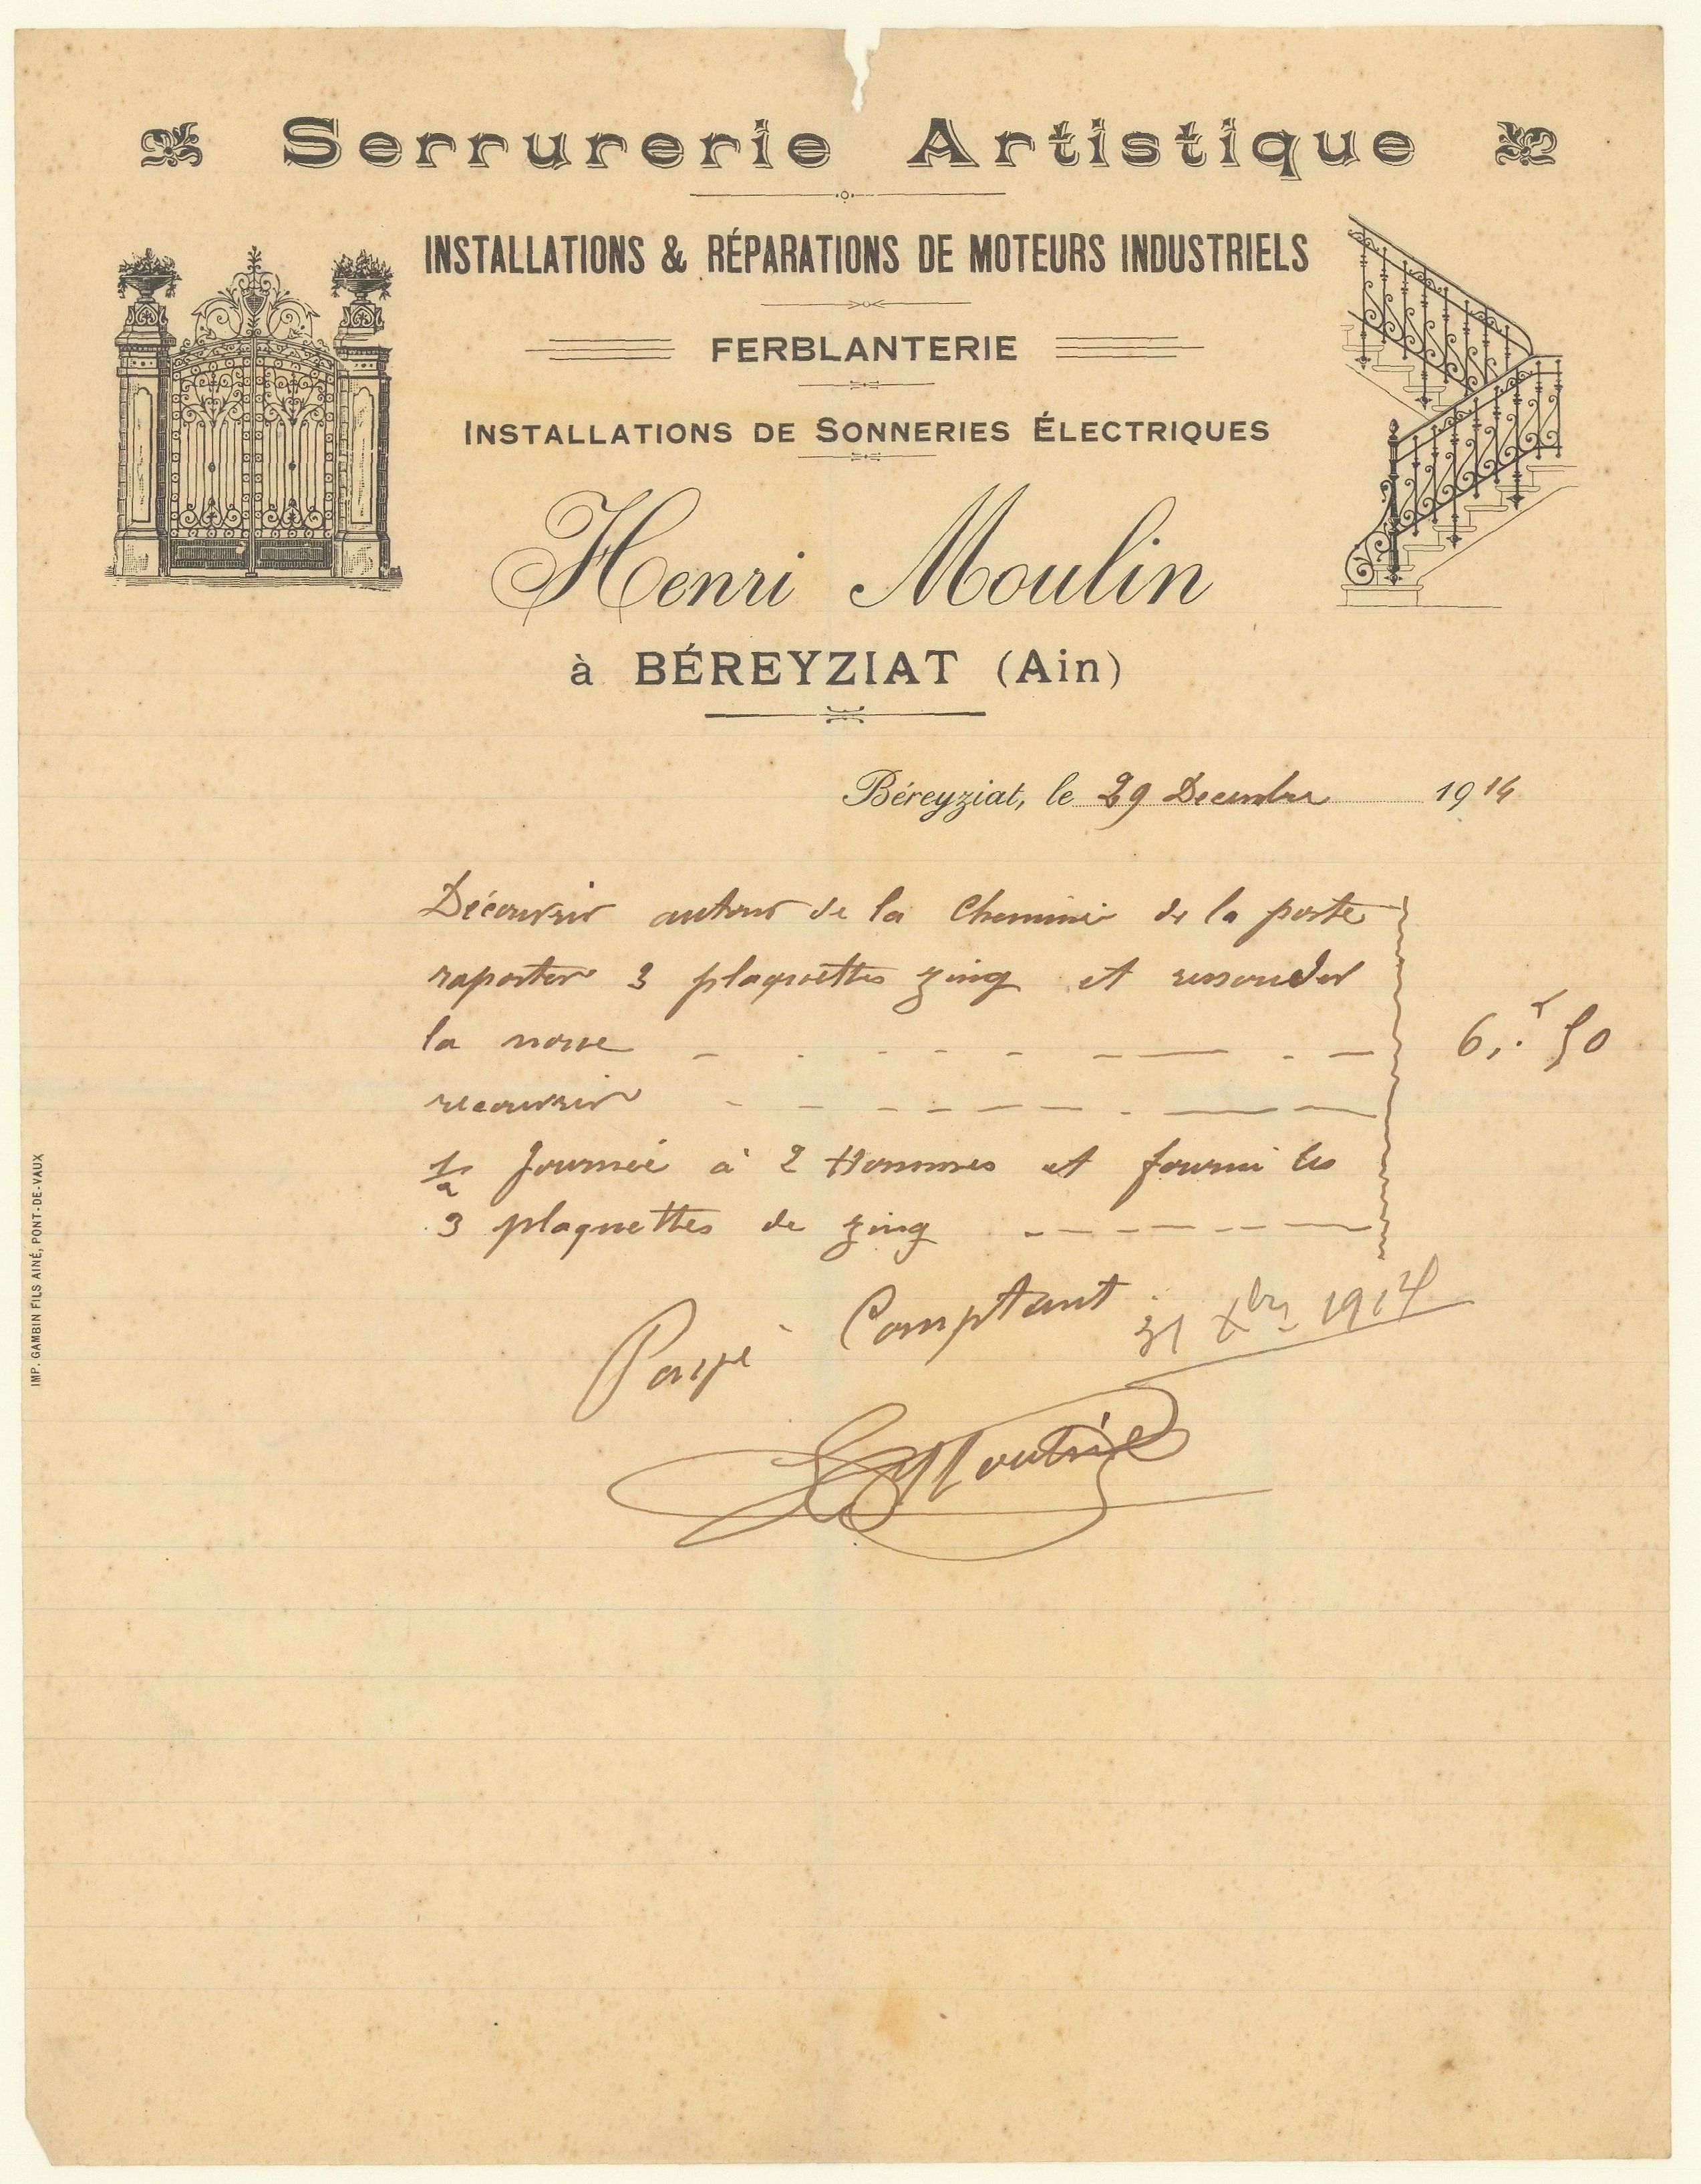 Serrurerie Artistique
INSTALLATIONS & RÉPARATIONS DE MOTEURS INDUSTRIELS
FERBLANTERIE
INSTALLATIONS DE SONNERIES ÉLECTRIQUES
Henri Moulin
à BÉREYZIAT (Ain)
Béreyziat, le 29 Decembre 1914
Découvrir autour de la Cheminé de la porte
raporter 3 plaquettes zing et ressouder
la noue
6,f 50
recouvrir
1/2 Journée à 2 Hommes et fourni les
3 plaquettes de zing
Payé Comptant
31 Xbre 1914
IMP. GAMBIN FILS AINÉ, PONT-DE-VAUX